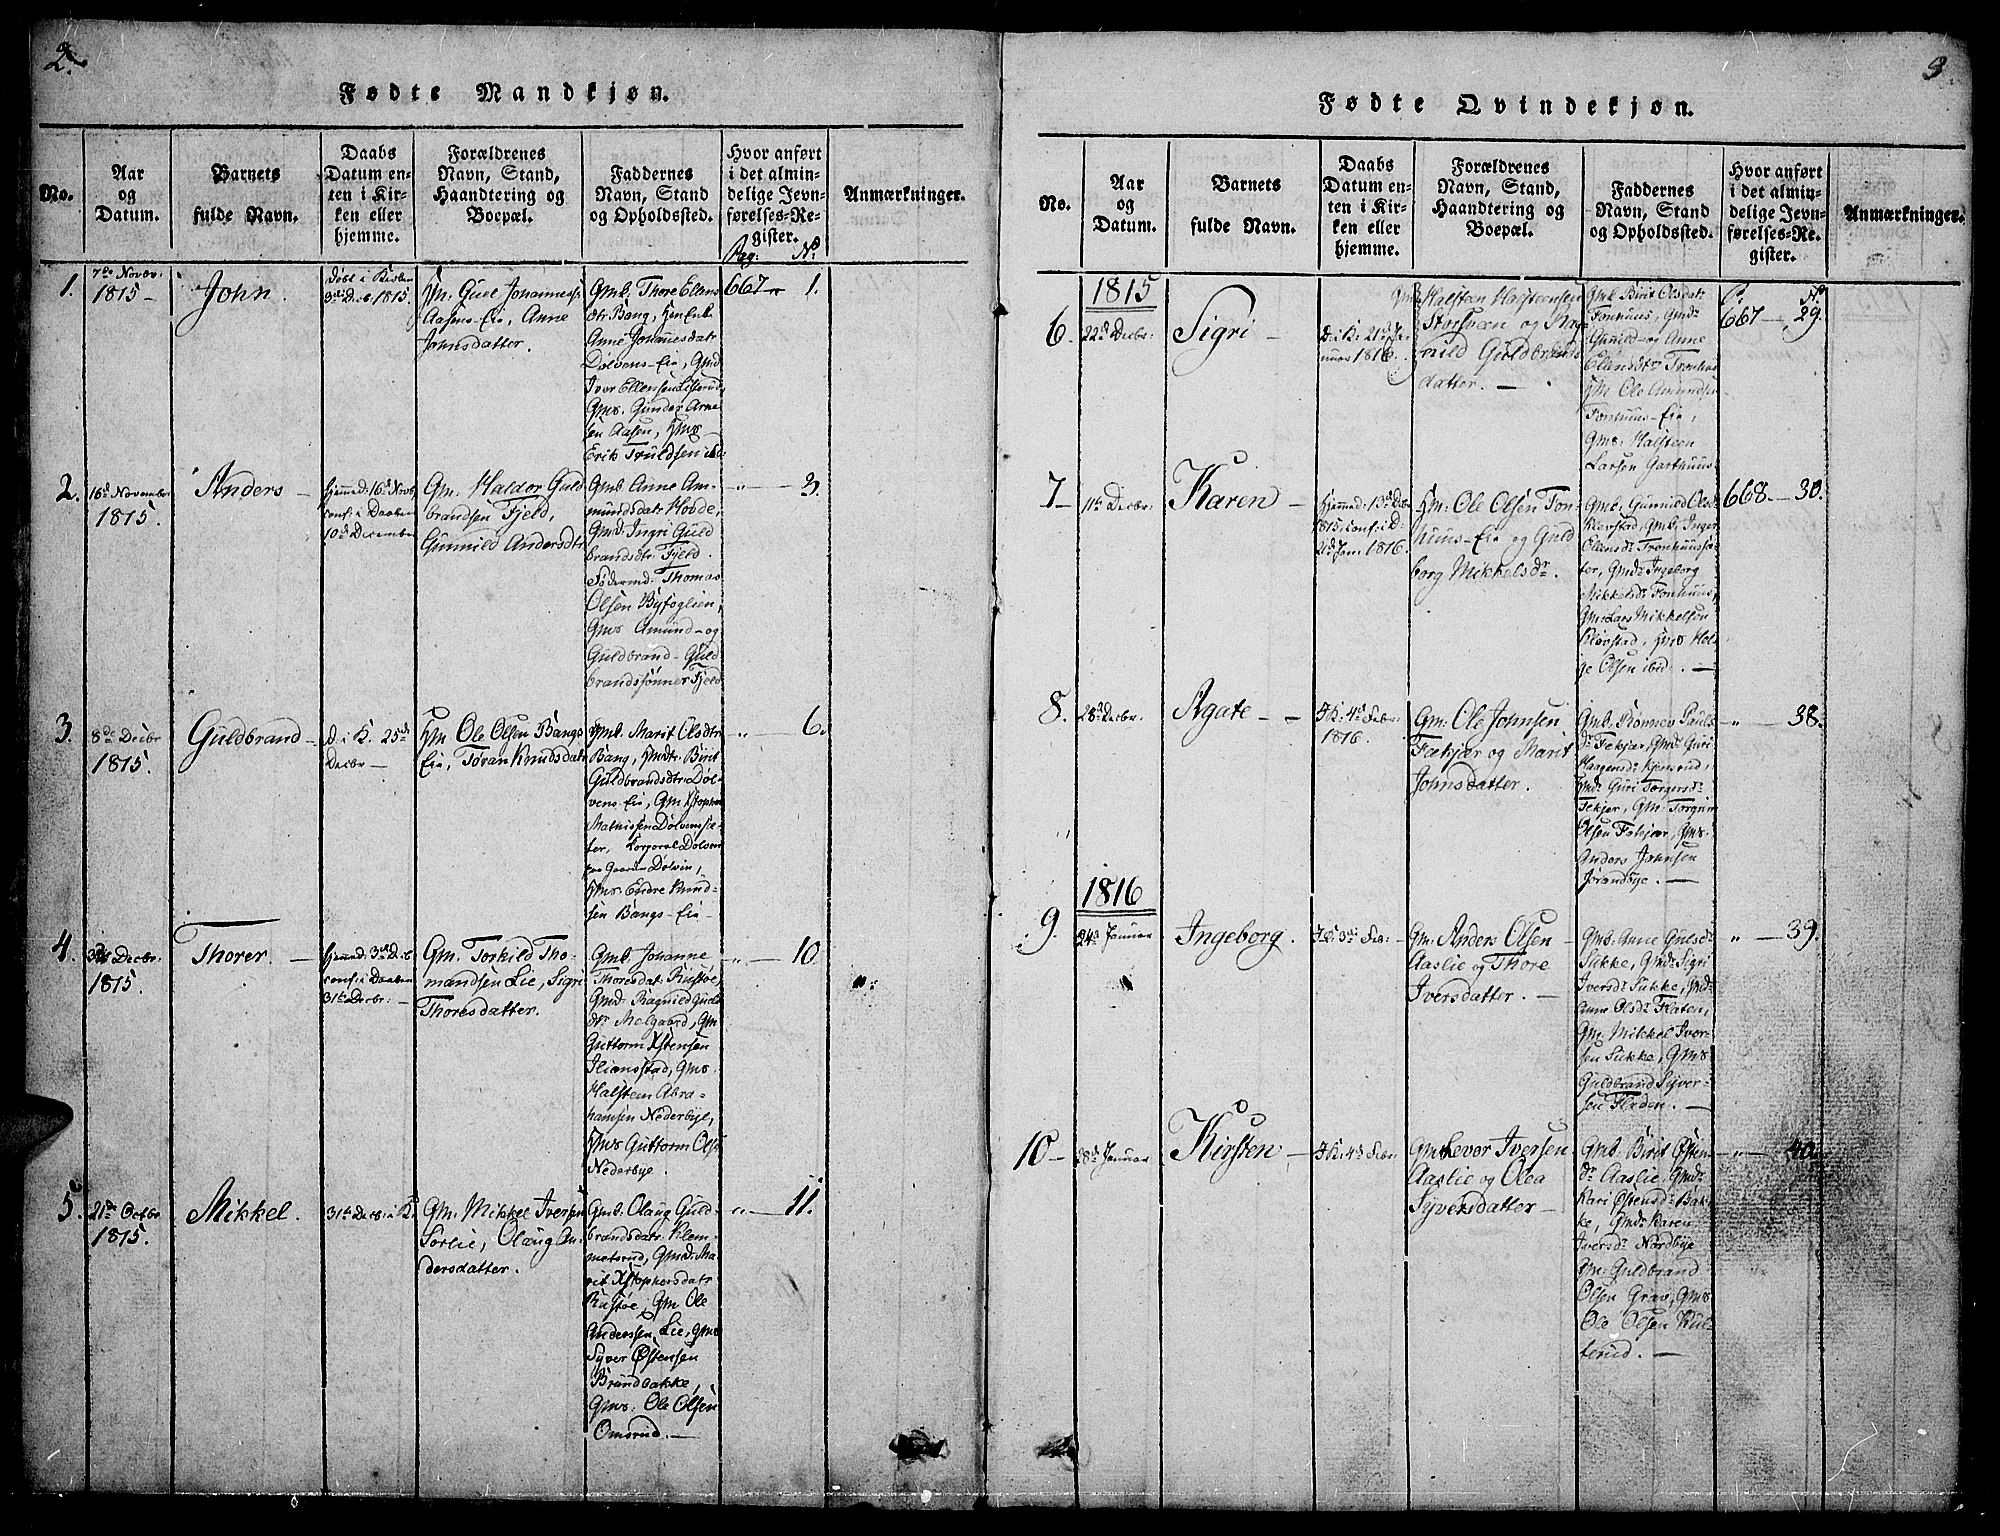 2.
Fødte Mandkjøn.
No.
Aar
og
Datum.
Barnets
fulde Navn.
Daabs
Datum en-
ten i Kir-
ken eller
hjemme.
Forældrenes
Navn, Stand,
Haandtering og
Boepæl.
Faddernes
Navn, Stand
og Opholdssted.
Hvor anført
i det almin-
delige Jevn-
førelses-Re-
gister.
Pag: No.
Anmærkninger.
1.
7de Novbr.
1815
John.
Døbt i Kirken
3die Decb 1815.
Gm. Gul Johannes
Aasens-Eie, Anne
Johnsdatter.
Gmk. Thore Ellens
dtr Bang,
Anne Johannesdatr
Dølvens-Eie, Gmd
Iver Ellensen
Gms. Gunder Arne
sen Aasen,
Erik Truldsen ibd:
667 1.
2.
16d November
1815.
Anders
hjemmed: 16d Novb
conf: i Daaben
10d December
Gm: Haldor Guld
brandsen Fjeld,
Gunnild Andersdtr
Gmk. Anne Am-
mundsdatr Hovde,
Gmd. Ingri Guld
brandsdtr. Fjeld.
Thomas
Olsen Byfoglien,
Gms Amund og
Guldbrand Guld
brandssønner Fjeld
" 3.
3.
8de Decbr
1815.
Guldbrand
D. i K. 25de
Decbr
Hm Ole Olsen Bangs
Eie, Tøran Knudsdatr
Gmk. Marit Olsdtr
Bang, Birit
Guldbrandsdtr. Døl-
vens-Eie, Gm Xstopher
Mathissen Dølvensæ-
ter, Korporal Dølven
paa Gaarden Dølvin,
Hms. Endre Knud-
sen Bangs-Eie
" 6.
4.
Decbr:
1815.
Thorer
hjemmed: 3d Decb
conf: i Daaben
31te Decbr:
Gm. Torkild Tho-
mandsen Lie, Sigri
Thoresdatter.
Gmk. Johanne
Thoresdat. Rustøe,
Gmd: Ragnild Gul
dtr Melgaard, Gm
Guttorm Xstensen
Ilianstad, Gms.
Halsteen Abra-
hamsen Nederbye,
Hms Guttorm Olsen
Nederbye.
" 10.
5.
21de Octbr
1815.
Mikkel.
31te Decbr: i K.
Gm. Mikkel Iversen
Sørlie, Olaug An-
dersdatter.
Gmk. Olaug Guld-
brandsdatr. Klem-
metsrud, Gmd: Ma-
rit Xstophersdatr
Rustøe, Gm Ole
Anderssen Lie, Gms
Syver Østensen
Brundbakke,
Gms: Ole Olsen
Omsrud.
" 11.
3.
Fødte Qvindekjøn.
No.
Aar
og
Datum.
Barnets
fulde Navn.
Daabs
Datum en-
ten i Kir-
ken eller
hjemme.
Forældrenes
Navn, Stand,
Haandtering og
Boepæl.
Faddernes
Navn, Stand
og Opholdssted.
Hvor anført
i det almin-
delige Jevn-
førelses-Re-
gister.
Anmærkninger.
1815
6.
22d Decbr:
Sigri
D. i K. 21d Ja-
nuar 1816.
Gm: Halsteen Halsteensen
Storsveen og Rag-
nild Guldbrands-
datter.
Gmk Birit Olsdat:
Tonhuus, Gmd:
Gunild og Anne
Elansdtr Tronhuus
Hm Ole Amundsen
Tonhuus-Eie,
Gms: Halsteen
Larsen Garthuus
P. No
667 29.
7
11te Decbr:
Karen
hjemmed: 13d Decbr
1815, conf: i D.
21d Jan. 1816.
Hm: Ole Olsen Ton-
huus-Eie og Guld
borg Mikkelsdr.
Gmk: Gunnild Olsd
Klevstad, Gmk. Inger
Ellensdr Tronhuussæ-
ter, Gmd: Ingeborg
Mikkelsdr Tonhuus,
Gm: Lars Mikkelsen
Klevstad, Hms Hel-
ge Olsen ibid.
668. 30.
8.
28d Decbr:
Agate
I K: 4d Febr:
1816.
Gm: Ole Johnsen
Fækjær og Marit
Johnsdatter.
Gmk. Rønnev Pauls
dr Fekjær, Gmd: Guri
Haagensdr Kjemsrud,
Guri Torgersdr
Fekjær, Gm: Torgrim
Olsen Fekjær, Gms.
Anders Johnsen
Jørandbye.
" 38.
1816
9.
24d Januar
Ingeborg.
I K: 3die Feb:
Gm: Anders Olsen
Aaslie og Thore
Iversdatter.
Gmk: Anne Gulsdr
Sukke, Gmd: Sigri
Iversdr Sukke,
Anne Olsdr Flaten,
Gm: Mikkel Iver-
sen Sukke, Gms
Guldbrand Syver-
sen Fladen.
" 39.
10
28d Januar
Kirsten
I K: 4d Febr
Gm Levor Iversen
Aaslie og Olea
Syversdatter
Gmk: Birit Østen
dr Aaslie, Gmd:
Kari Østensdr Bak-
ke, Gmd: Karen
Iversdr Nordbye
Gm: Guldbrand
Olsen Grav, Gms
Ole Olsen Kul-
terud.
" 40.